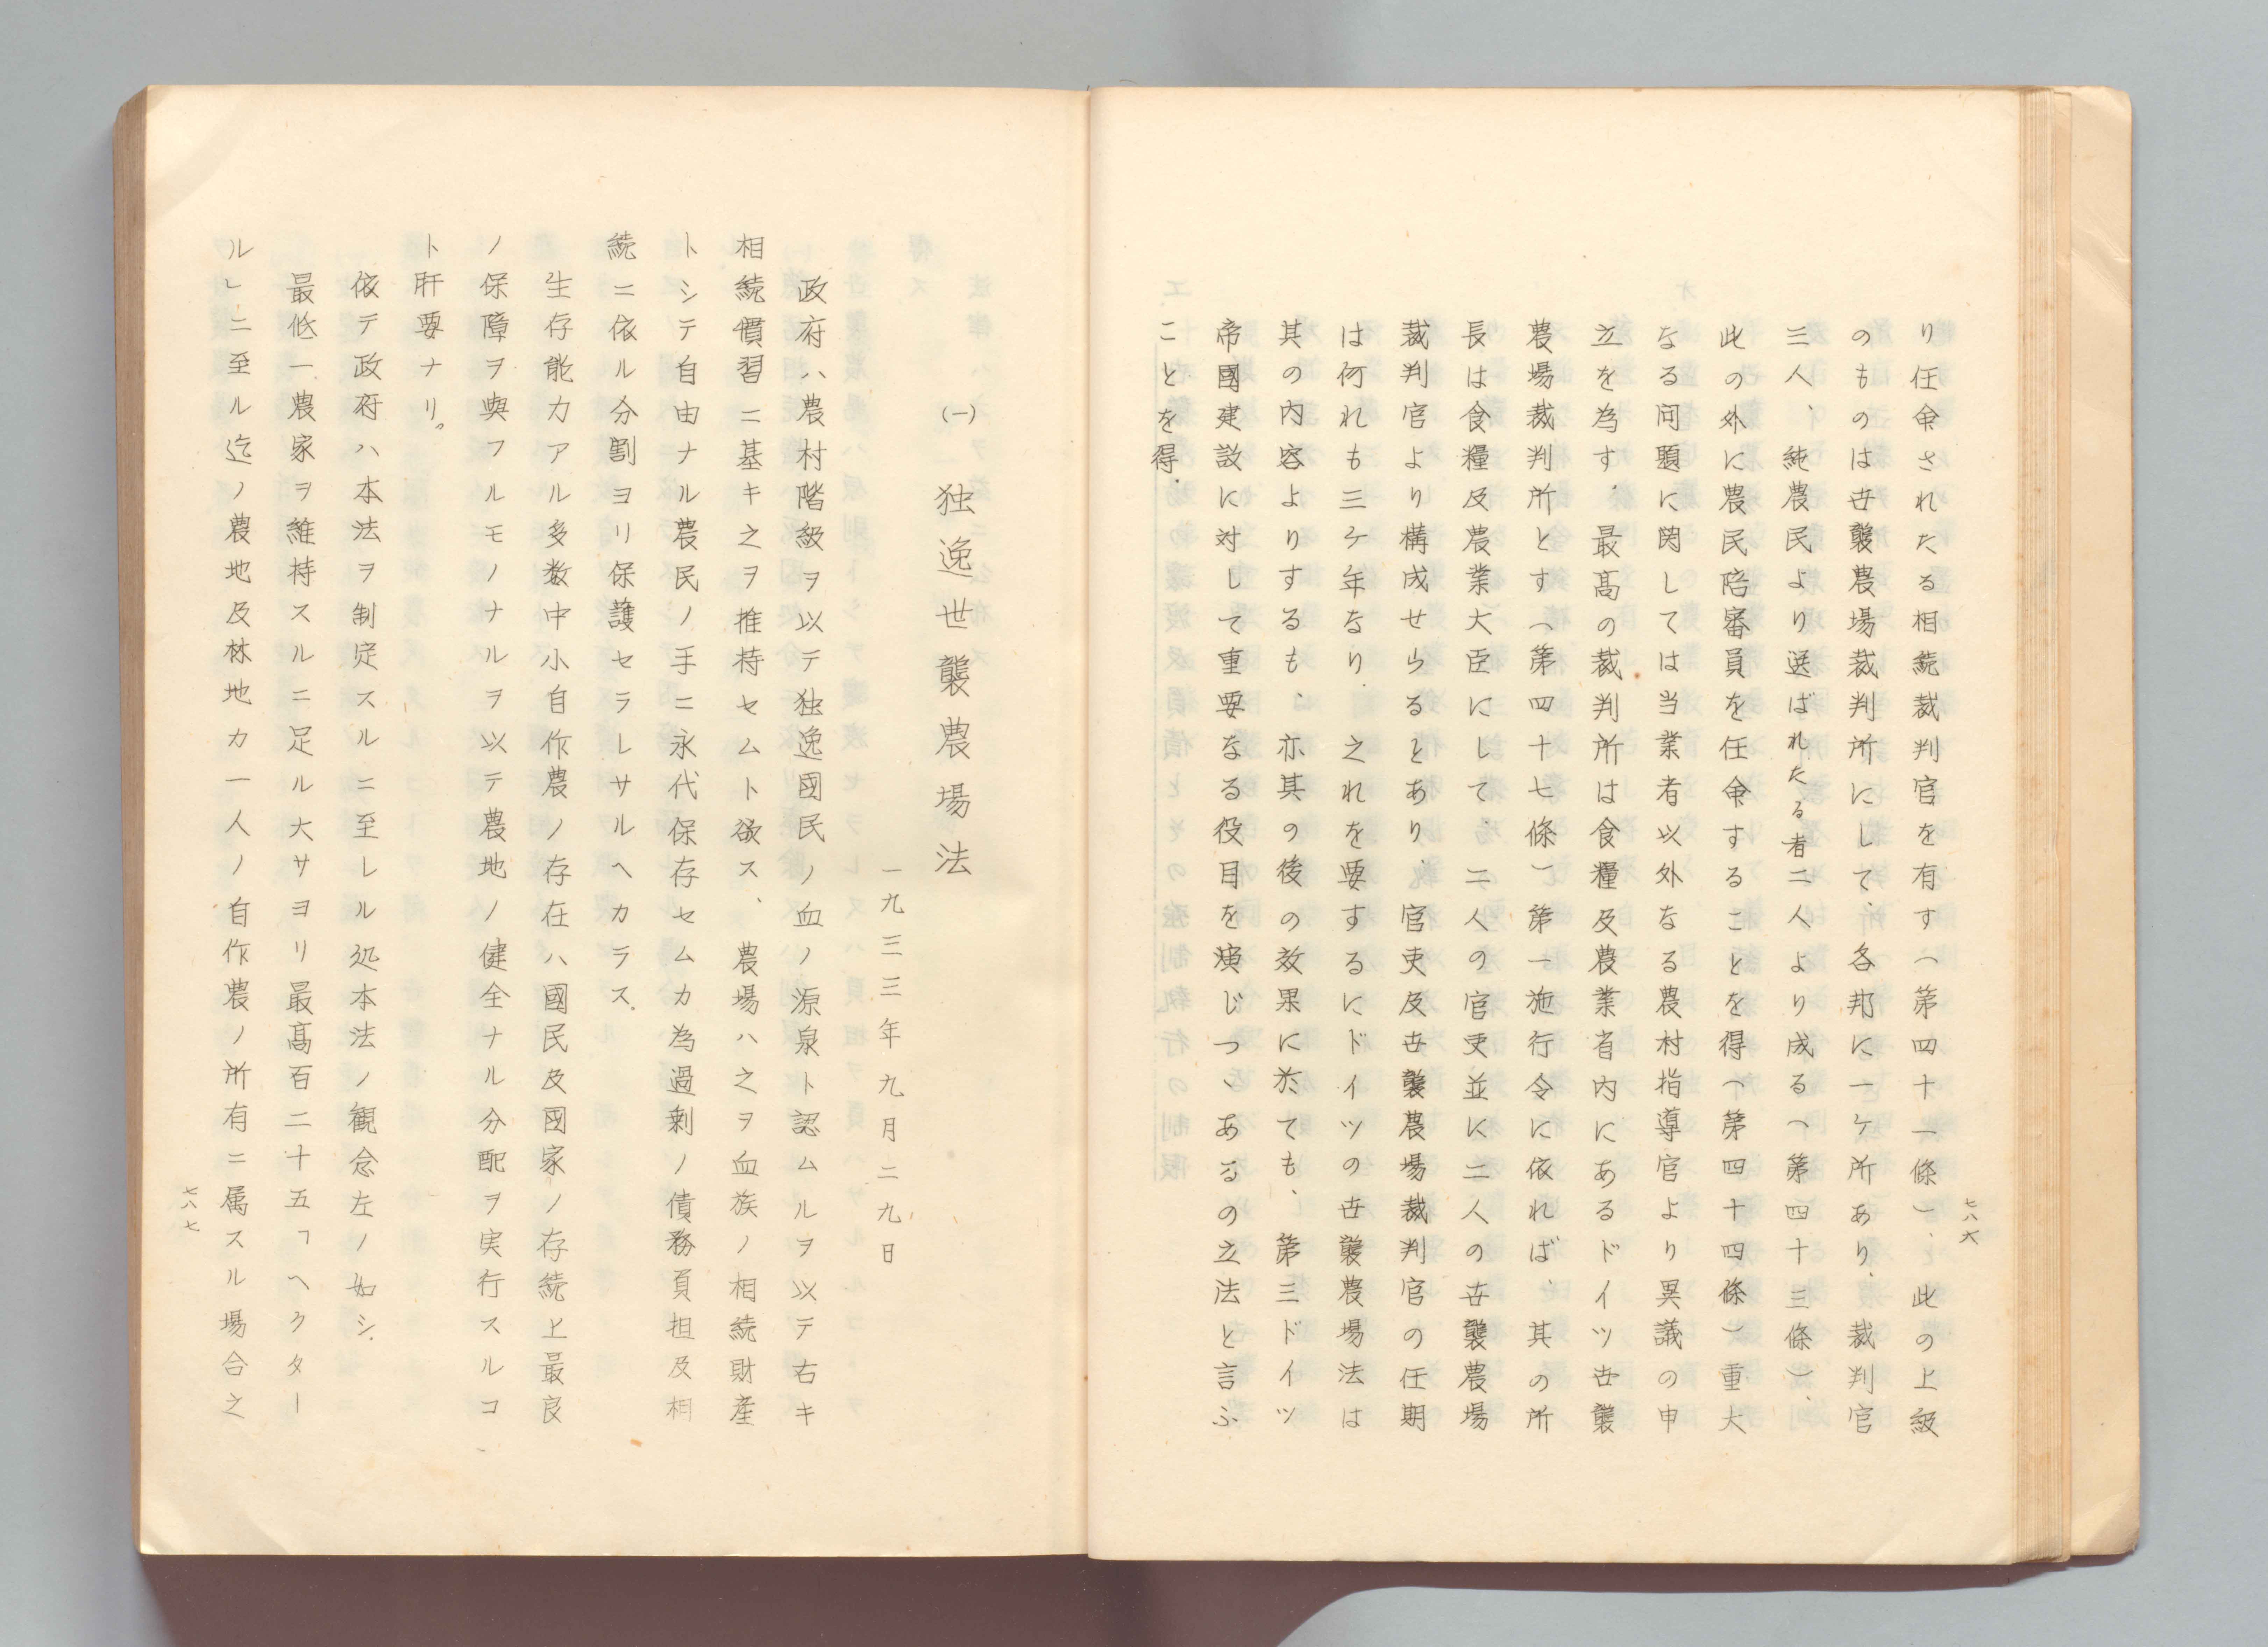 り任命されたる相続裁判官を有す（第四十一條）、此の上級
のものは世襲農場裁判所にして、各邦に一ケ所あり、裁判官
三人、純農民より選ばれたる者二人より成る（第四十三條）、
此の外に農民陪審員を任命することを得（第四十四條）重大
なる问題に関しては当業者以外なる農村指導官より異議の申
立を為す、最高の裁判所は食糧及農業省内にあるドイツ世襲
農場裁判所とす（第四十七條）第一施行令に依れば、其の所
長は食糧及農業大臣にして、二人の官吏並に二人の世襲農場
裁判官より構成せらるとあり、官吏及世襲農場裁判官の任期
は何れも三ケ年なり、之れを要するにドイツの世襲農場法は
其の内容よりするも、亦其の後の效果に於ても、第三ドイツ
帝國建設に対して重要なる役目を演じつゝあるの立法と言ふ
ことを得、
七八六
(一) 独逸世襲農場法
一九三三年九月二九日
政府ハ農村階級ヲ以テ独逸國民ノ血ノ源泉ト認ムルヲ以テ右キ
相続慣習ニ基キ之ヲ推持セムト欲ス、農場ハ之ヲ血族ノ相続財産
トシテ自由ナル農民ノ手ニ永代保存セムカ為過剰ノ債務負担及相
続ニ依ル分割ヨリ保護セラレサルヘカラス、
生存能力アル多数中小自作農ノ存在ハ國民及國家ノ存続上最良
ノ保障ヲ與フルモノナルヲ以テ農地ノ健全ナル分配ヲ実行スルコ
ト肝要ナリ。
依テ政府ハ本法ヲ制定スルニ至レル処本法ノ観念左ノ如シ、
最低一農家ヲ維持スルニ足ル大サヨリ最高百二十五「ヘクター
ル」ニ至ル迄ノ農地及林地カ一人ノ自作農ノ所有ニ属スル場合之
七八七